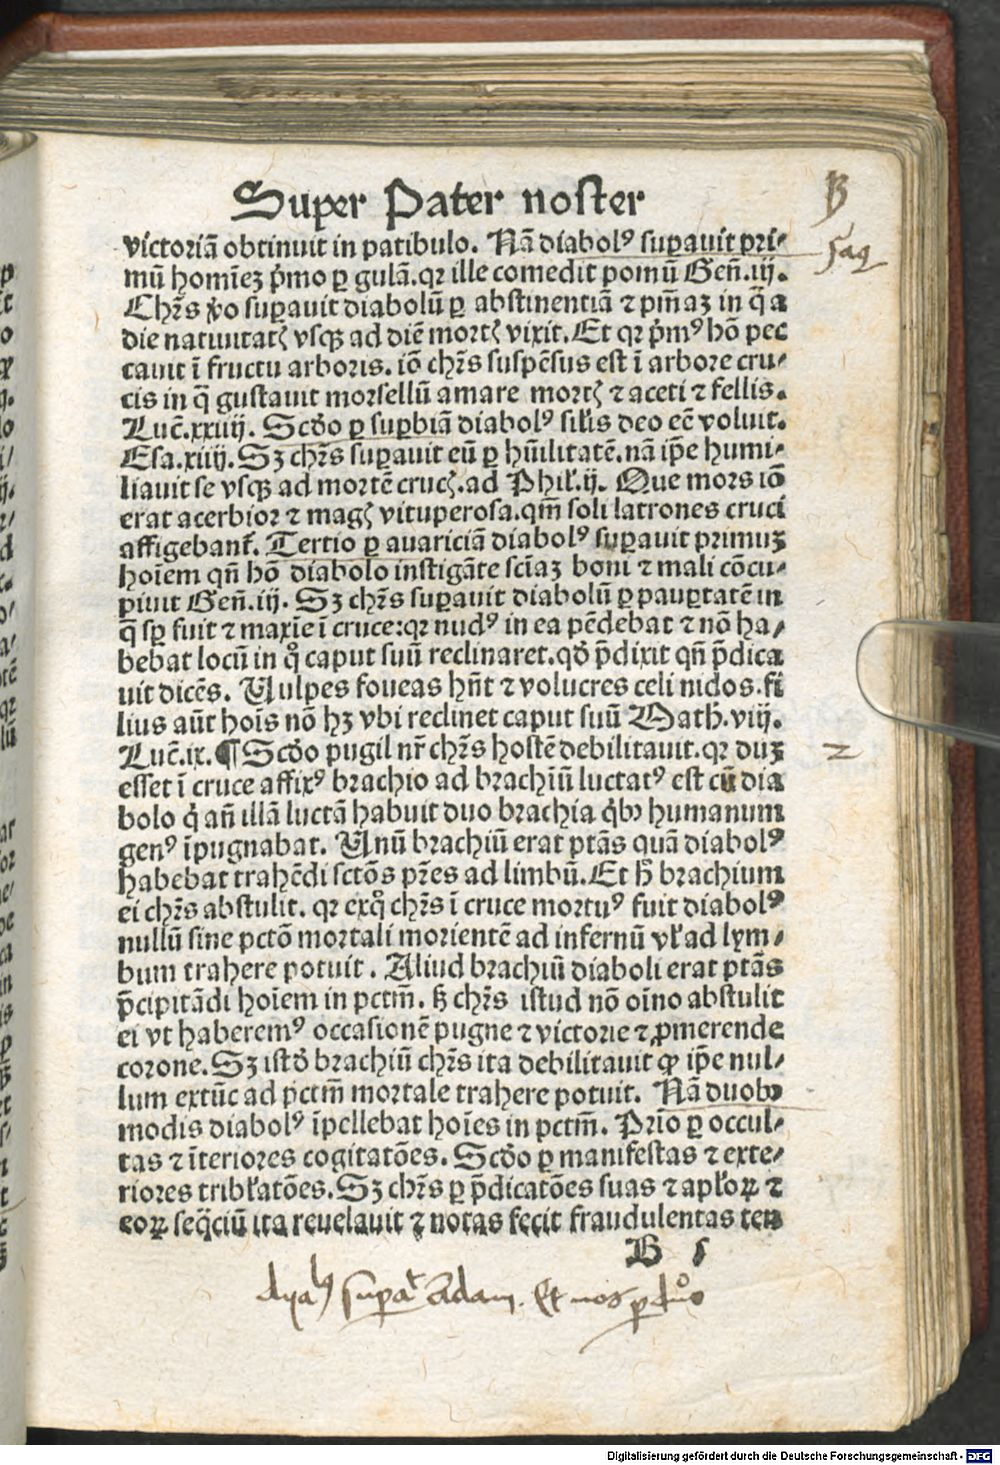 Super Pater noster
B
victoriā obtinuit in patibulo. Nā diabolꝰ suꝑauit pri⸗
mū homīeꝫ p̄mo ꝑ gulā. qꝛ ille comedit pomū Gen̄. iij.
Chr̄s ꝟo suꝑauit diabolū ꝑ abstinentiā ⁊ pm̄aꝫ in q̄ a
die natiuitatꝭ vsqꝫ ad diē mortꝭ vixit. Et qꝛ p̄mꝰ hō pec
cauit ī fructu arboris. iō chr̄s suspēsus est ī arbore cru⸗
cis in q̄ gustauit morsellū amare mortꝭ ⁊ aceti ⁊ fellis.
Luc̄. xxiij. Scd̄o ꝑ suꝑbiā diabolꝰ silis deo eē voluit.
Esa. xiiij. Sꝫ chr̄s suꝑauit eū ꝑ hūilitatē. nā ip̄e humi⸗
liauit se vsqꝫ ad mortē crucꝭ. ad Phil. ij. Que mors iō
erat acerbior ⁊ magꝭ vituperosa. qm̄ soli latrones cruci
affigebant̄. Tertio ꝑ auariciā diabolꝰ suꝑauit primuꝫ
hoīem qn̄ hō diabolo instigāte sciaꝫ boni ⁊ mali cōcu⸗
piuit Gen̄. iij. Sꝫ chr̄s suꝑauit diabolū ꝑ pauꝑtatē in
q̄ sꝑ fuit ⁊ maxīe ī cruce: qꝛ nudꝰ in ea pēdebat ⁊ nō ha⸗
bebat locū in qͦ caput suū reclinaret. qd̄ p̄dixit qn̄ p̄dica
uit dicēs. Uulpes foueas hn̄t ⁊ volucres celi nidos. fi
lius aūt hoīs nō hꝫ vbi reclinet caput suū Math̄. viij.
Luc̄. ix. ¶ Scd̄o pugil nr̄ chr̄s hostē debilitauit. qꝛ duꝫ
2
esset ī cruce affixꝰ brachio ad brachīū luctatꝰ est cū dia
bolo q̇ an̄ illā luctā habuit duo brachia q̇bꝰ humanum
genꝰ īpugnabat. Unū brachiū erat ptās quā diabolꝰ
habebat trahēdi sctōs pr̄es ad limbū. Et h̄ brachium
ei chr̄s abstulit. qꝛ exqͦ chr̄s ī cruce mortuꝰ fuit diabolꝰ
nullū sine pctō mortali morientē ad infernū vł ad lym⸗
bum trahere potuit. Aliud brachiū diaboli erat ptās
p̄cipitādi hoīem in pctm̄. ꝫ chr̄s istud nō oīno abstulit
ei vt haberemꝰ occasionē pugne ⁊ victorie ⁊ ꝓmerende
corone. Sꝫ istd̄ brachiū chr̄s ita debilitauit ꝙ ip̄e nul⸗
lum extūc ad pctm̄ mortale trahere potuit. Nā duobꝰ
modis diabolꝰ īpellebat hoīes in pctm̄. Prīo ꝑ occul⸗
tas ⁊ īteriores cogitatōes. Scd̄o ꝑ manifestas ⁊ exte⸗
riores tribłatōes. Sꝫ chr̄s ꝑ p̄dicatōes suas ⁊ apłoꝝ ⁊
eoꝝ seq̄ciū ita reuelauit ⁊ notas fecit fraudulentas ten
B 5
suꝑat Adam. Et nos ꝑ
Digitalisierung gefördert durch die Deutsche Forschungsgemeinschaft - DFG